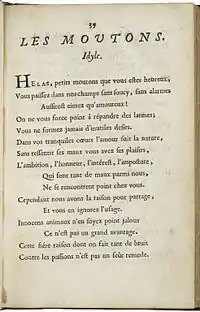 59
LES MOUTONS.
Idyle.
HELAS, petits moutons que vous estes heureux,
Vous paissez dans nos champs sans soucy, sans alarmes
Aussitost aimez qu'amoureux!
On ne vous force point à répandre des larmes;
Vous ne formez jamais d'inutiles desirs.
Dans vos tranquiles cœurs l'amour suit la nature,
Sans ressentir ses maux vous avez ses plaisirs,
L'ambition, l'honneur, l'interest, l'imposture,
Qui font tant de maux parmi nous,
Ne se rencontrent point chez vous.
Cependant nous avons la raison pour partage,
Et vous en ignorez l'usage.
Innocens animaux n'en soyez point jaloux
Ce n'est pas un grand avantage.
Cette fiére raison dont on fait tant de bruit
Contre les passions n'est pas un seûr remede.